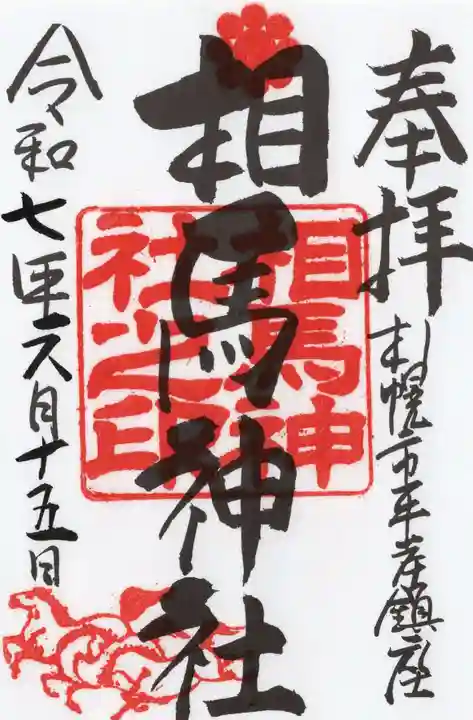 奉拝
札幌市平岸鎮座
相馬神社
相馬神
社之印
令和七年六月十五日